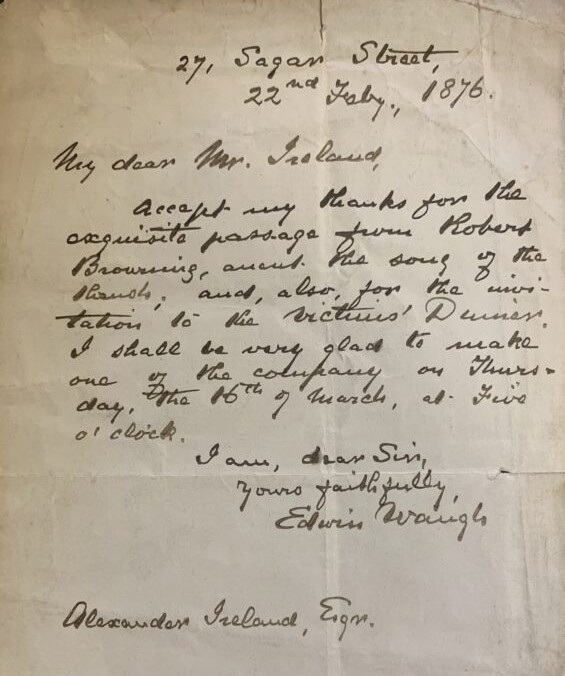 27, Sagar Street,
22nd Feby., 1876.
My dear Mr. Ireland,
Accept my thanks for the
exquisite passage from Robert
Browning, anent the song of the
thrush; and, also, for the invi-
tation to the Victims' Dinner.
I shall be very glad to make
one of the company on Thurs-
day, the 16th of March, at Five
o'clock.
I am, dear Sir,
Yours faithfully,
Edwin Waugh
Alexander Ireland, Esqr.